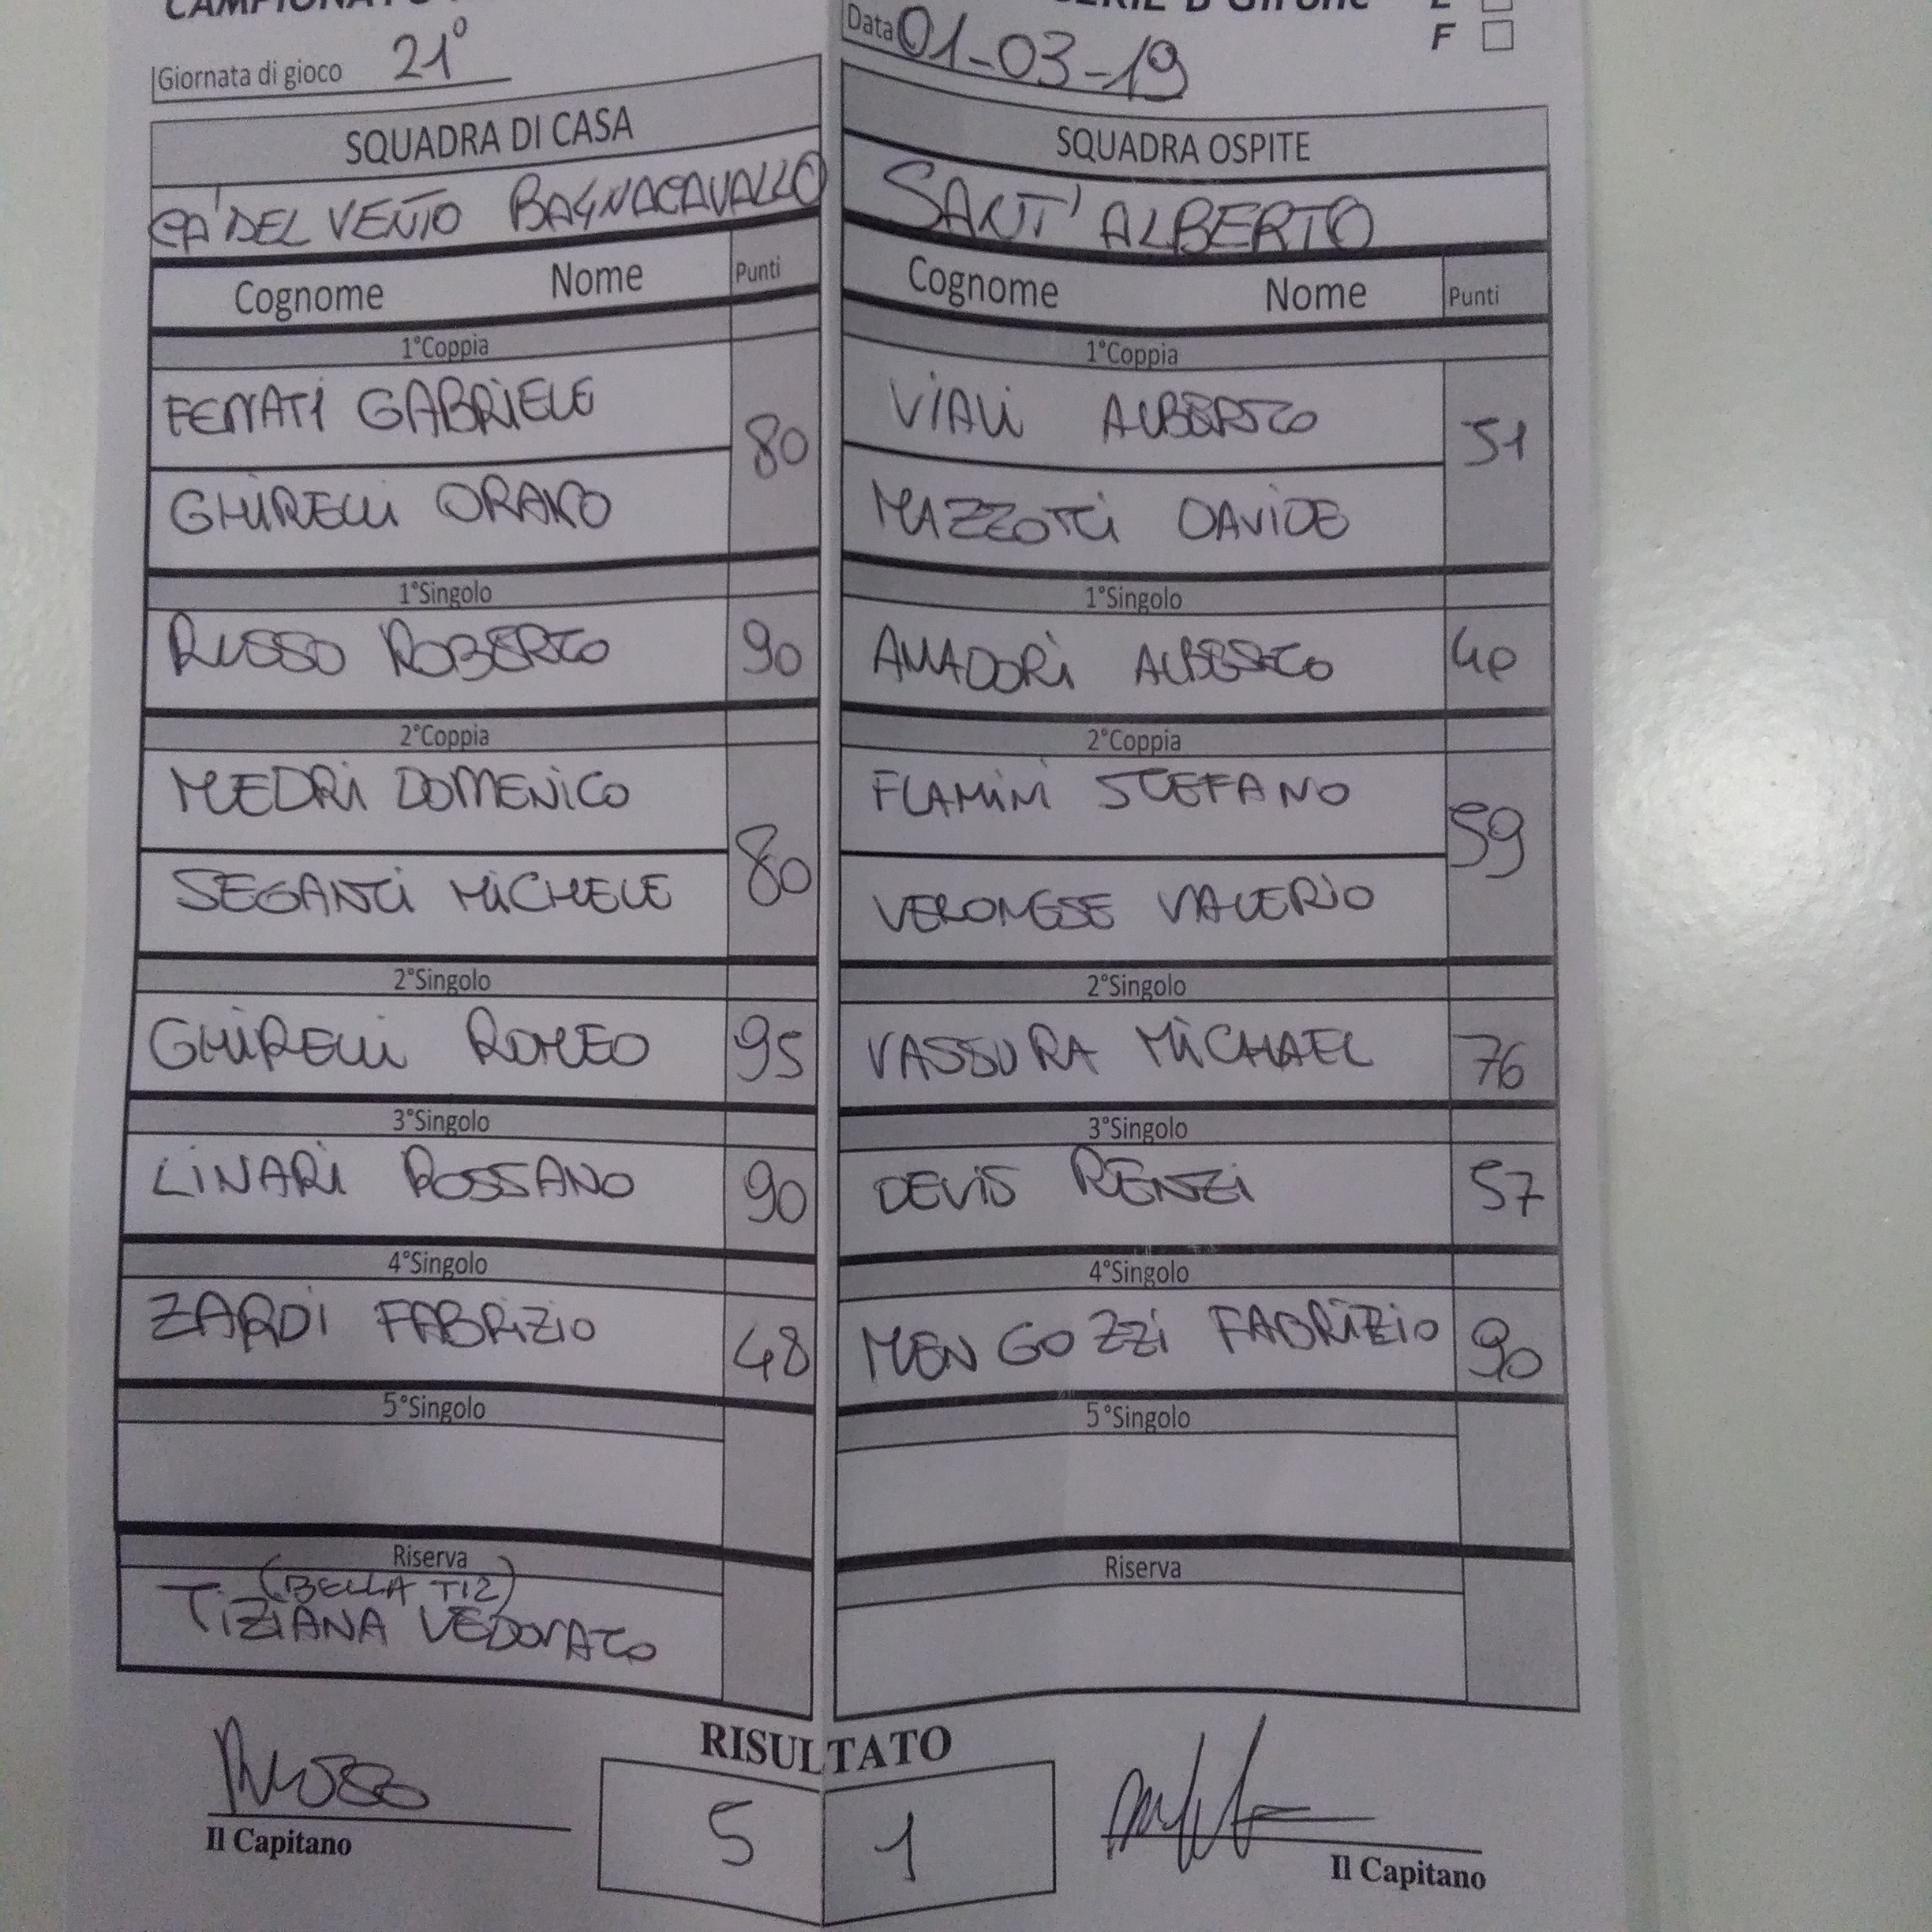 Giornata di gioco 21°
Data 01-03-19
F
SQUADRA DI CASA
CA' DEL VENTO BAGNACAVALLO
Cognome Nome Punti
1°Coppia
GABRIELE
80
GHIRELLI
1°Singolo
RUSSO ROBERTO 90
2°Coppia
MEDRI DOMENICO
80
SEGANTI MICHELE
2°Singolo
GHIRELLI ROMEO 95
3°Singolo
LINARI ROSSANO 90
4°Singolo
ZARDI FABRIZIO 48
5°Singolo
Riserva
(BELLA TIZ)
TIZIANA VEDOVATO
SQUADRA OSPITE
SANT'ALBERTO
Cognome Nome Punti
1°Coppia
VIALI ALBERTO
51
MAZZOTTI DAVIDE
1°Singolo
AMADORI ALBERTO 40
2°Coppia
FLAMINI STEFANO
59
VERONESE VALERIO
2°Singolo
VASSURA MICHAEL 76
3°Singolo
DEVIS RENZI 57
4°Singolo
MENGOZZI FABRIZIO 90
5°Singolo
Riserva
RISULTATO
5 1
Russo
Il Capitano
Il Capitano